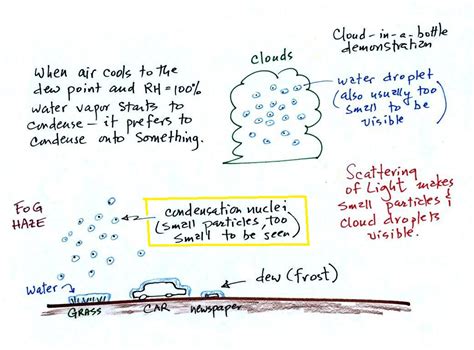 Cloud-in-a-bottle
demonstration
Clouds
When air cools to the
dew point and RH=100%
water vapor starts to
condense - it prefers to
condense onto something.
water droplet
(also usually too
small to be
visible
Scattering
of Light makes
small particles &
cloud droplets
visible.
FOG
HAZE
condensation nuclei
(small particles, too
small to be seen)
water
dew (frost)
GRASS
CAR
newspaper